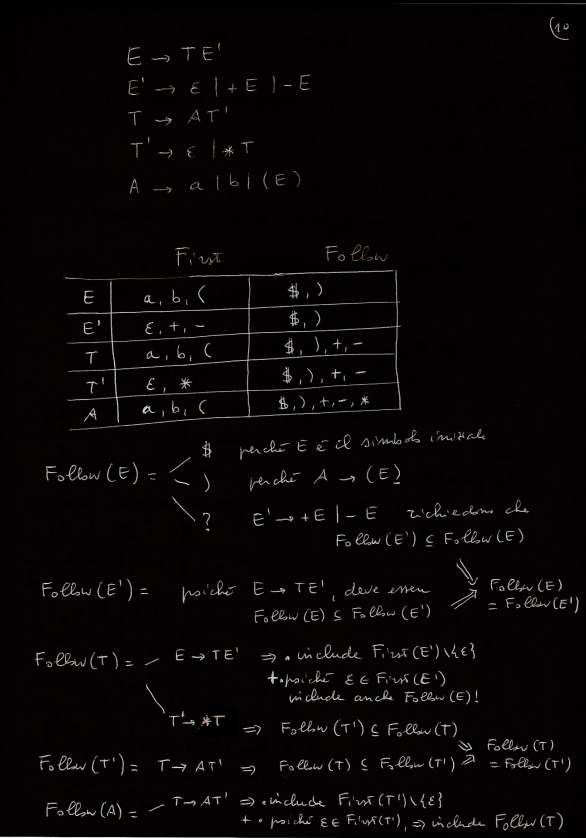 10
E → TE'
E' → ε | +E | -E
T → AT'
T' → ε | *T
A → a | b | (E)
First Follow
E a, b, ( $, )
E' ε, +, - $, )
T a, b, ( $, ), +, -
T' ε, * $, ), +, -
A a, b, ( $, ), +, -, *
$ perché E è il simbolo iniziale
Follow(E) = ) perché A → (E)
? E' → +E | -E richiedono che
Follow(E') ⊆ Follow(E)
Follow(E') = poiché E → TE', deve essere
Follow(E) ⊆ Follow(E')
⇒ Follow(E)
= Follow(E')
Follow(T) = E → TE' ⇒ • include First(E')\{ε}
+ • poiché ε ∈ First(E')
include anche Follow(E)!
T' → *T ⇒ Follow(T') ⊆ Follow(T)
Follow(T') = T → AT' ⇒ Follow(T) ⊆ Follow(T')
⇒ Follow(T)
= Follow(T')
Follow(A) = T → AT' ⇒ • include First(T')\{ε}
+ • poiché ε ∈ First(T'), ⇒ include Follow(T)